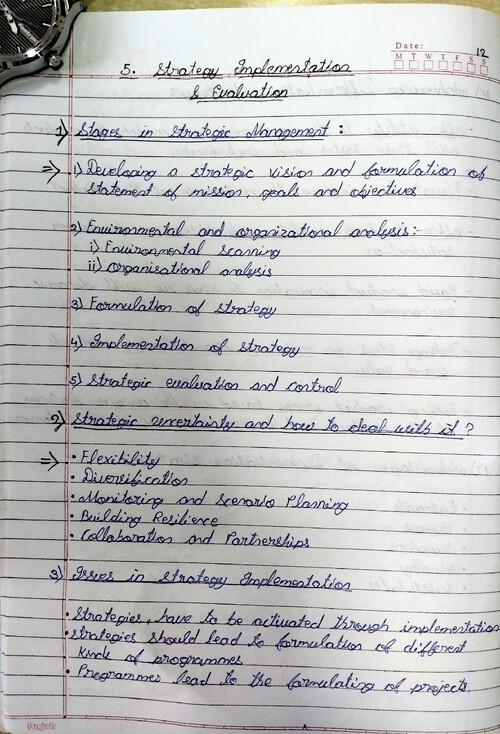 Date:
12
M T W T F S S
5. Strategy Implementation
& Evaluation
1) Stages in Strategic Management :
⇒ 1) Developing a strategic vision and formulation of
statement of mission, goals and objectives
2) Environmental and organizational analysis:-
i) Environmental scanning
ii) organisational analysis
3) Formulation of strategy
4) Implementation of strategy
5) Strategic evaluation and control
2) Strategic uncertainty and how to deal with it ?
⇒ • Flexibility
• Diversification
• Monitoring and Scenario Planning
• Building Resilience
• Collaboration and Partnerships
3) Issues in Strategy Implementation
• Strategies, have to be activated through implementation
• strategies should lead to formulation of different
kinds of programmes
• Programmes lead to the formulating of projects.